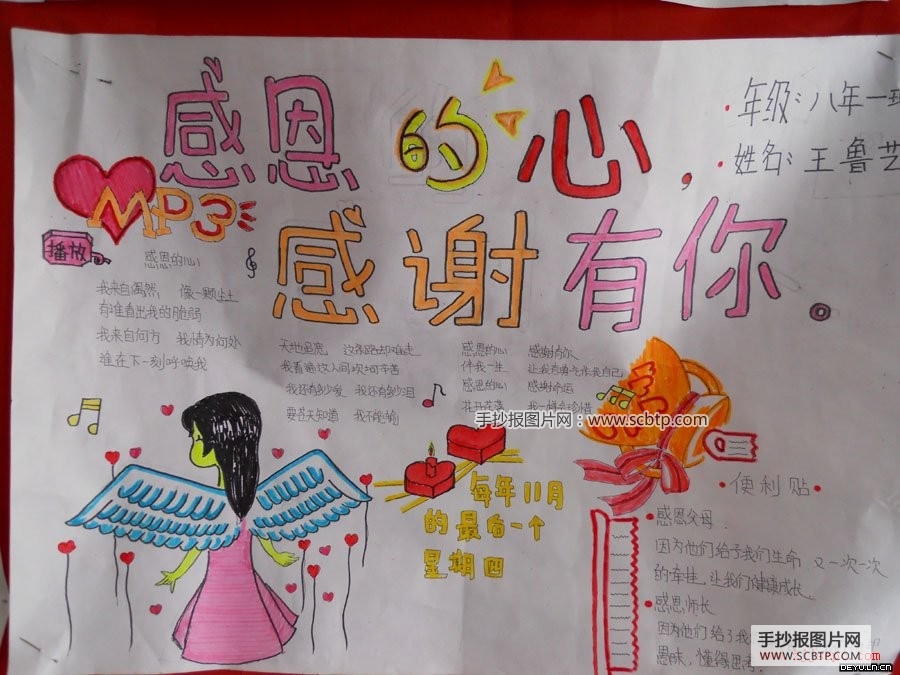 感恩的心,
感谢有你。
年级:八年一班
姓名:王鲁艺
MP3
播放
感恩的心
我来自偶然, 像一颗尘土
有谁看出我的脆弱
我来自何方 我情为何处
谁在下一刻呼唤我
天地虽宽 这条路去难走
我看遍这人间坎坷辛苦
我还有多少爱 我还有多少泪
要苍天知道 我不认输
感恩的心 感谢有你
伴我一生 让我有勇气作我自己
感恩的心 感谢命运
花开花落 我一样会珍惜
手抄报图片网:www.scbtp.com
每年11月
的最后一个
星期四
·便利贴·
感恩父母
因为他们给予我们生命 又一次一次
的牵挂,让我们健康成长
感恩师长
因为他们给了我
愚昧,懂得思考
手抄报图片网
WWW.SCBTP.COM
DEYU.LN.CN